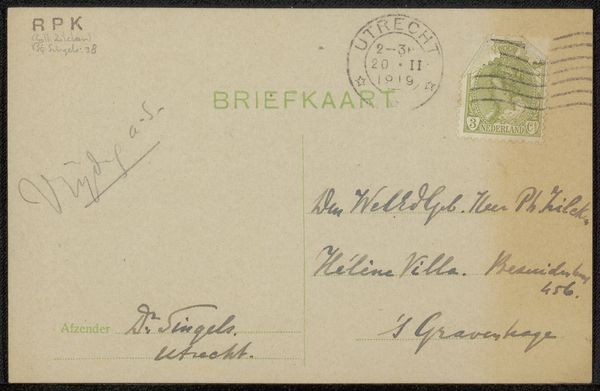 RPK
(Coll. Zilcken)
UTRECHT
2-3
20 · II
1919
BRIEFKAART
3 Ct
NEDERLAND
Vrijdag a.s.
Den WelEdlGeb. Heer Ph Zilcken
Hélène Villa. Bezuidenhout
456.
's Gravenhage
Afzender Dr. Singels.
Utrecht.